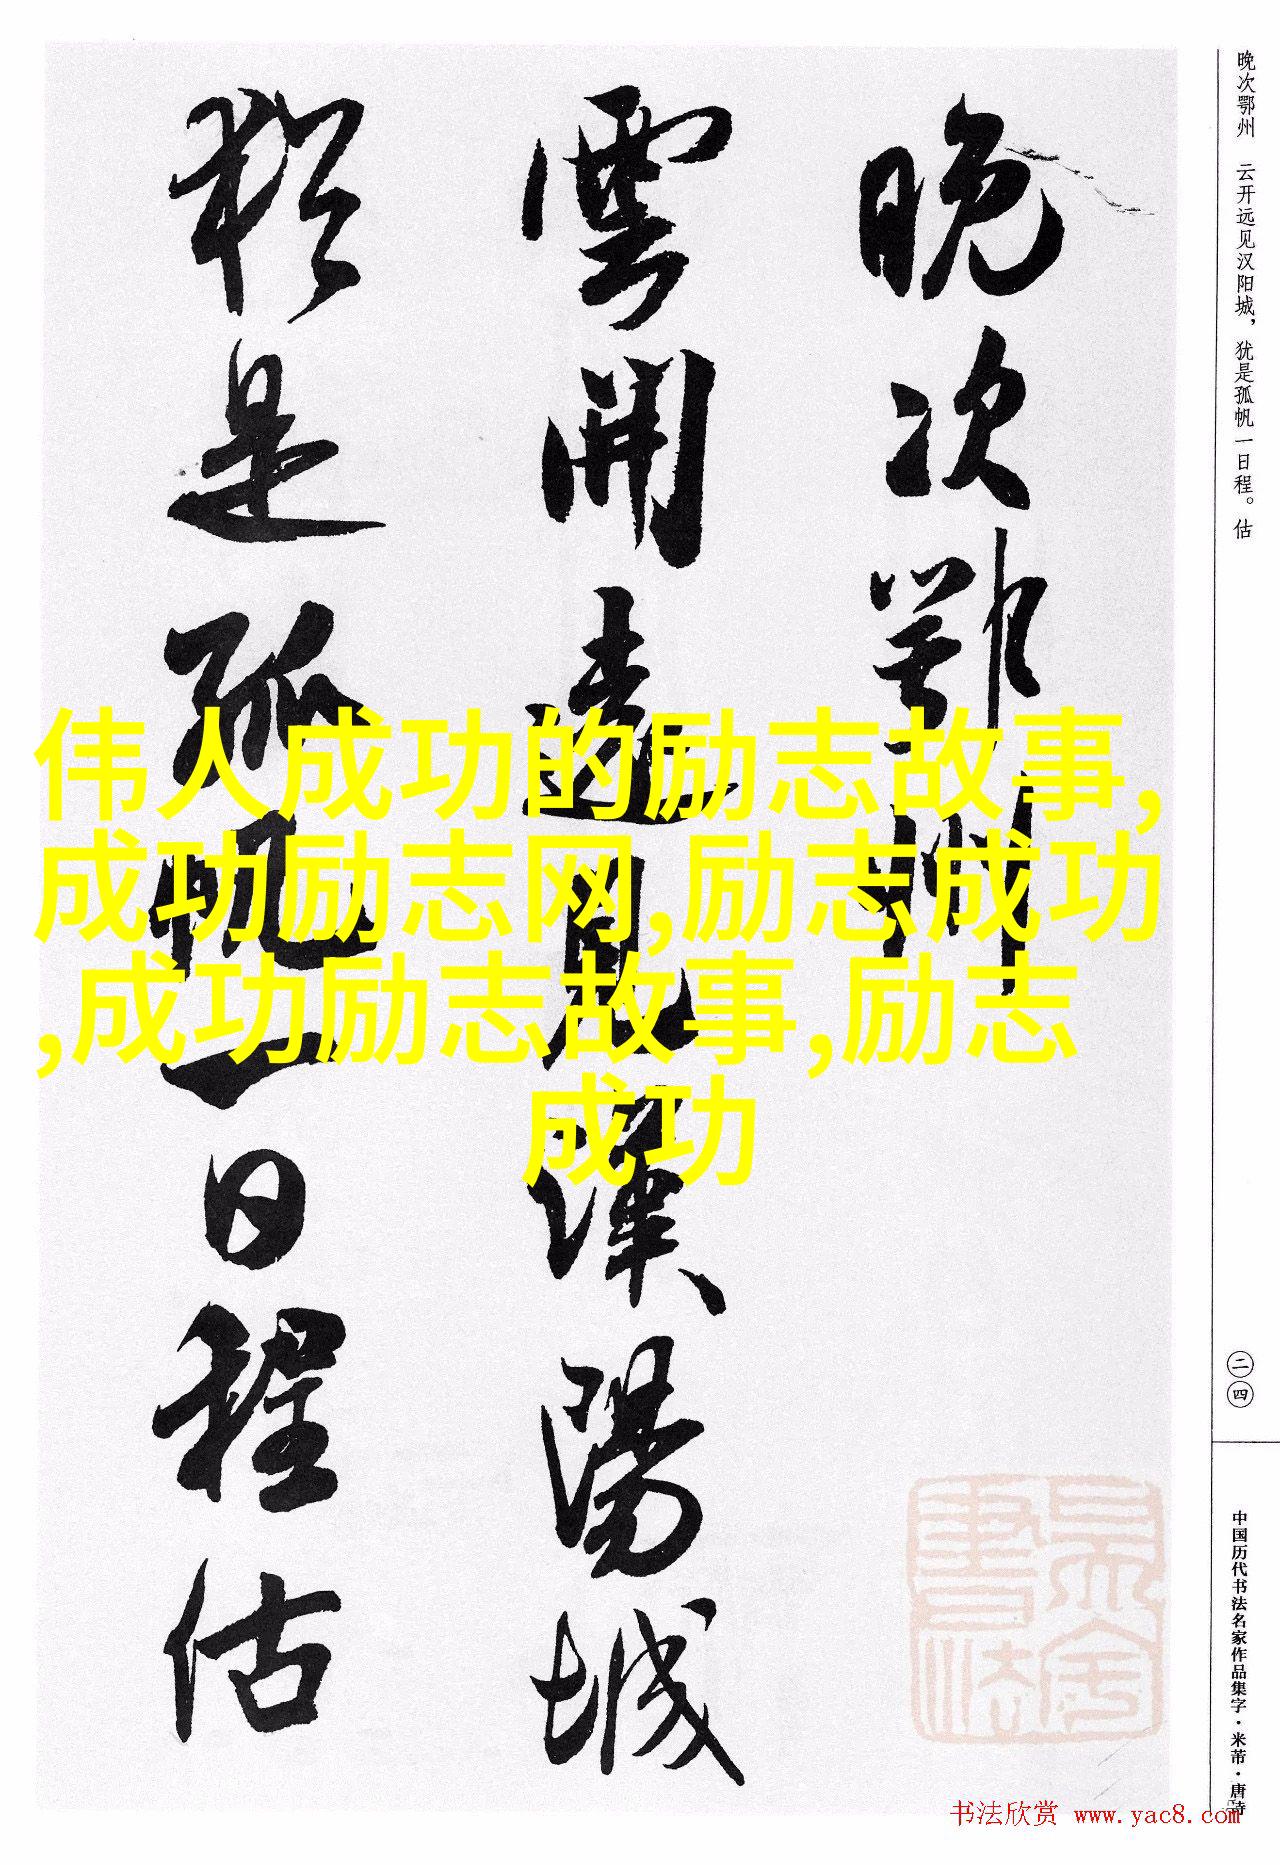 晚次鄂州
雲開遠見漢陽城
猶是孤帆一日程估
晚次鄂州　云开远见汉阳城，犹是孤帆一日程。估
二四
中国历代书法名家作品集字·米芾·唐诗
伟人成功的励志故事,
成功励志网,励志成功
,成功励志故事,励志
成功
书法欣赏 www.yac8.com